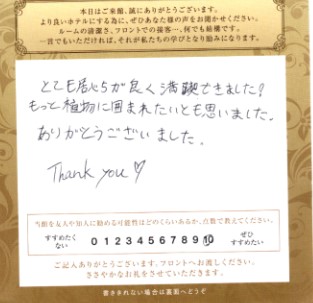 本日はご来館、誠にありがとうございます。
より良いホテルにする為に、ぜひあなた様の声をお聞かせください。
ルームの清潔さ、フロントでの接客…、何でも結構です。
一言でもいただければ、それが私たちの学びとなり励みになります。
とても居心ちが良く満喫できました!
もっと植物に囲まれたいとも思いました。
ありがとうございました。
Thank you ♡
当館を友人や知人に勧める可能性はどのくらいあるか、点数で教えてください。
すすめたくない 0 1 2 3 4 5 6 7 8 9 10 ぜひすすめたい
ご記入ありがとうございます。フロントへお渡しください。
ささやかなお礼をさせていただきます。
書ききれない場合は裏面へどうぞ